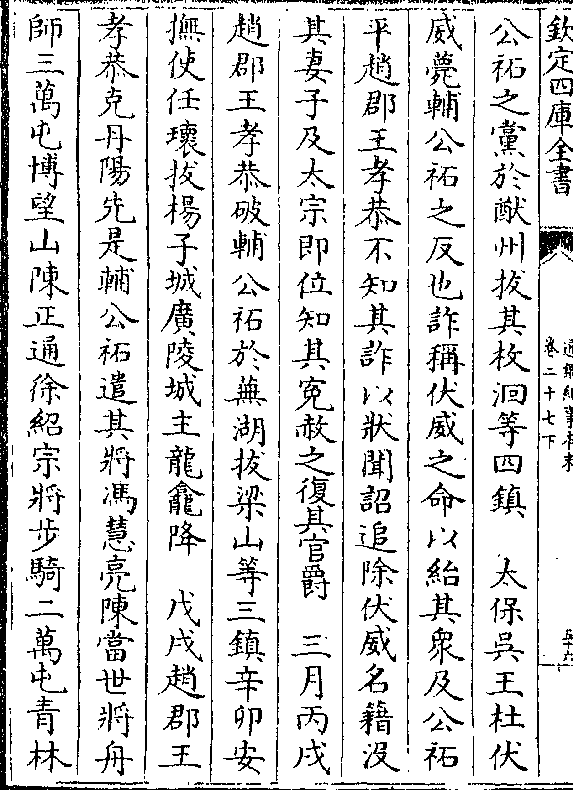 欽定四庫全書
通鑑紀事本末
卷二十七下
五十六
公祏之黨於猷州拔其枚洄等四鎮　太保吳王杜伏
威薨輔公祏之反也詐稱伏威之命以紿其衆及公祏
平趙郡王孝恭不知其詐以狀聞詔追除伏威名籍没
其妻子及太宗即位知其寃赦之復其官爵　三月丙戌
趙郡王孝恭破輔公祏於蕪湖拔梁山等三鎮辛卯安
撫使任瓌拔楊子城廣陵城主龍龕降　戊戌趙郡王
孝恭克丹陽先是輔公祏遣其將馮慧亮陳當世將舟
師三萬屯博望山陳正通徐紹宗將步騎二萬屯青林